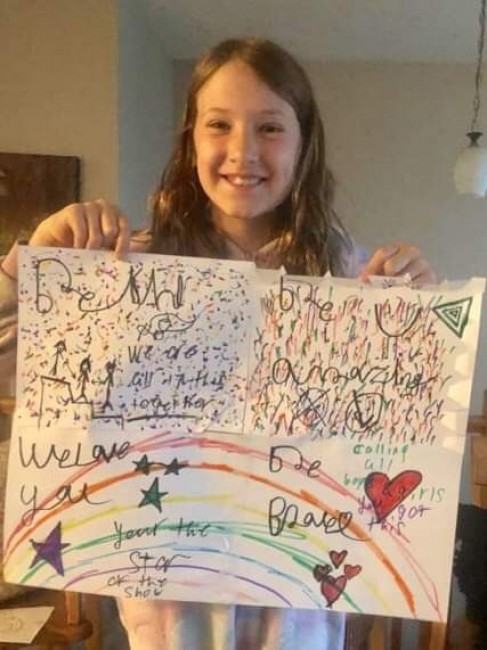 Be
We are
all in this
together
be
amazing
We Love
you
your the
star
of the
show
Be
Brave
Calling
all
boys & girls
you got
this